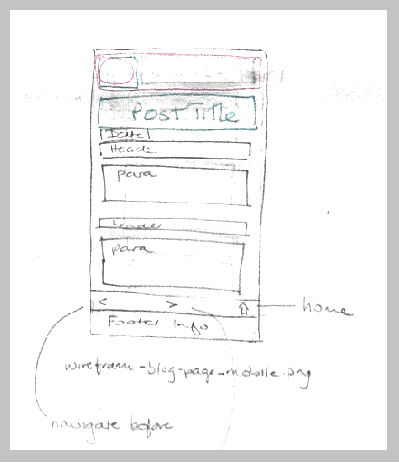 Post Title
Date
Header
para
Header
para
< >
home
Footer Info
wireframe-blog-page-mobile.png
navigate before